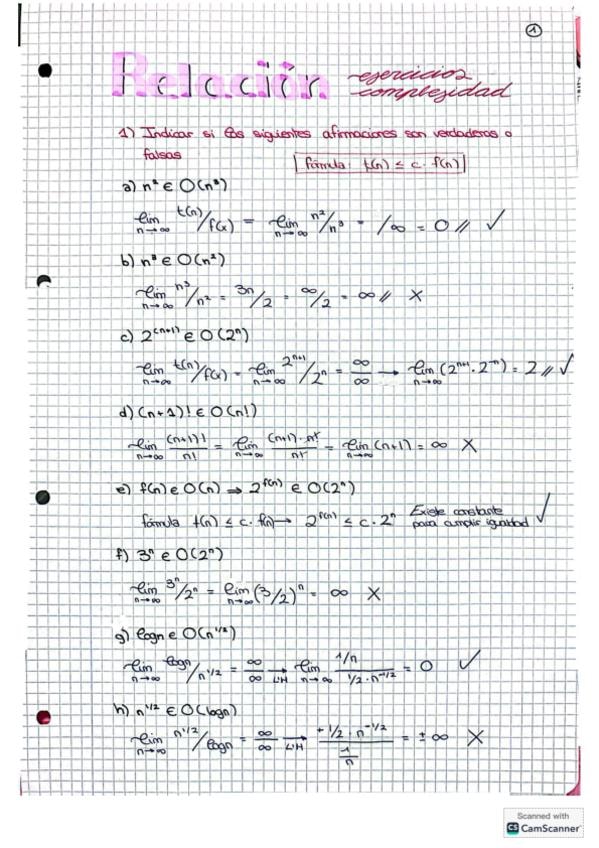 1
Relación ejercicios complejidad
1) Indicar si las siguientes afirmaciones son verdaderas o
falsas
fórmula: t(n) ≤ c · f(n)
a) n² ∈ O(n³)
lim n→∞ t(n)/f(x) = lim n→∞ n²/n³ = 1/∞ = 0 // ✓
b) n³ ∈ O(n²)
lim n→∞ n³/n² = 3n/2 = ∞/2 = ∞ // X
c) 2^(n+1) ∈ O(2ⁿ)
lim n→∞ t(n)/f(x) = lim n→∞ 2ⁿ⁺¹/2ⁿ = ∞/∞ → lim n→∞ (2ⁿ⁺¹ · 2⁻ⁿ) = 2 // ✓
d) (n+1)! ∈ O(n!)
lim n→∞ (n+1)!/n! = lim n→∞ (n+1)·n!/n! = lim n→∞ (n+1) = ∞ X
e) f(n) ∈ O(n) ⇒ 2^f(n) ∈ O(2ⁿ)
fórmula t(n) ≤ c · f(n) → 2^f(n) ≤ c · 2ⁿ Existe constante para cumplir igualdad ✓
f) 3ⁿ ∈ O(2ⁿ)
lim n→∞ 3ⁿ/2ⁿ = lim n→∞ (3/2)ⁿ = ∞ X
g) logn ∈ O(n^1/2)
lim n→∞ logn/n^1/2 = ∞/∞ → L'H lim n→∞ (1/n)/(1/2 · n^-1/2) = 0 ✓
h) n^1/2 ∈ O(logn)
lim n→∞ n^1/2/logn = ∞/∞ → L'H (+1/2 · n^-1/2)/(1/n) = ± ∞ X
Scanned with
CS CamScanner